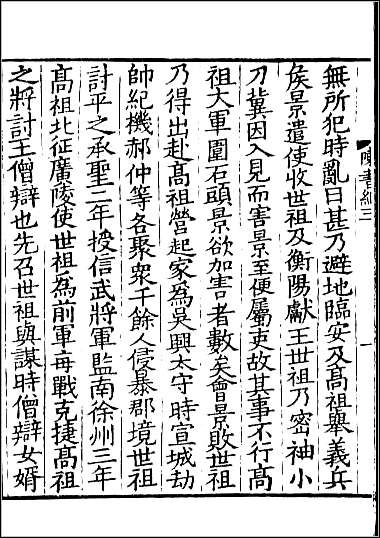 陳書紀三
一
無所犯時亂日甚乃避地臨安及髙祖舉義兵
侯景遣使收世祖及衡陽獻王世祖乃密袖小
刀冀因入見而害景至便屬吏故其事不行髙
祖大軍圍石頭景欲加害者數矣會景敗世祖
乃得出赴髙祖營起家爲吳興太守時宣城劫
帥紀機郝仲等各聚衆千餘人侵暴郡境世祖
討平之承聖二年授信武將軍監南徐州三年
髙祖北征廣陵使世祖爲前軍每戰克捷髙祖
之將討王僧辯也先召世祖與謀時僧辯女婿